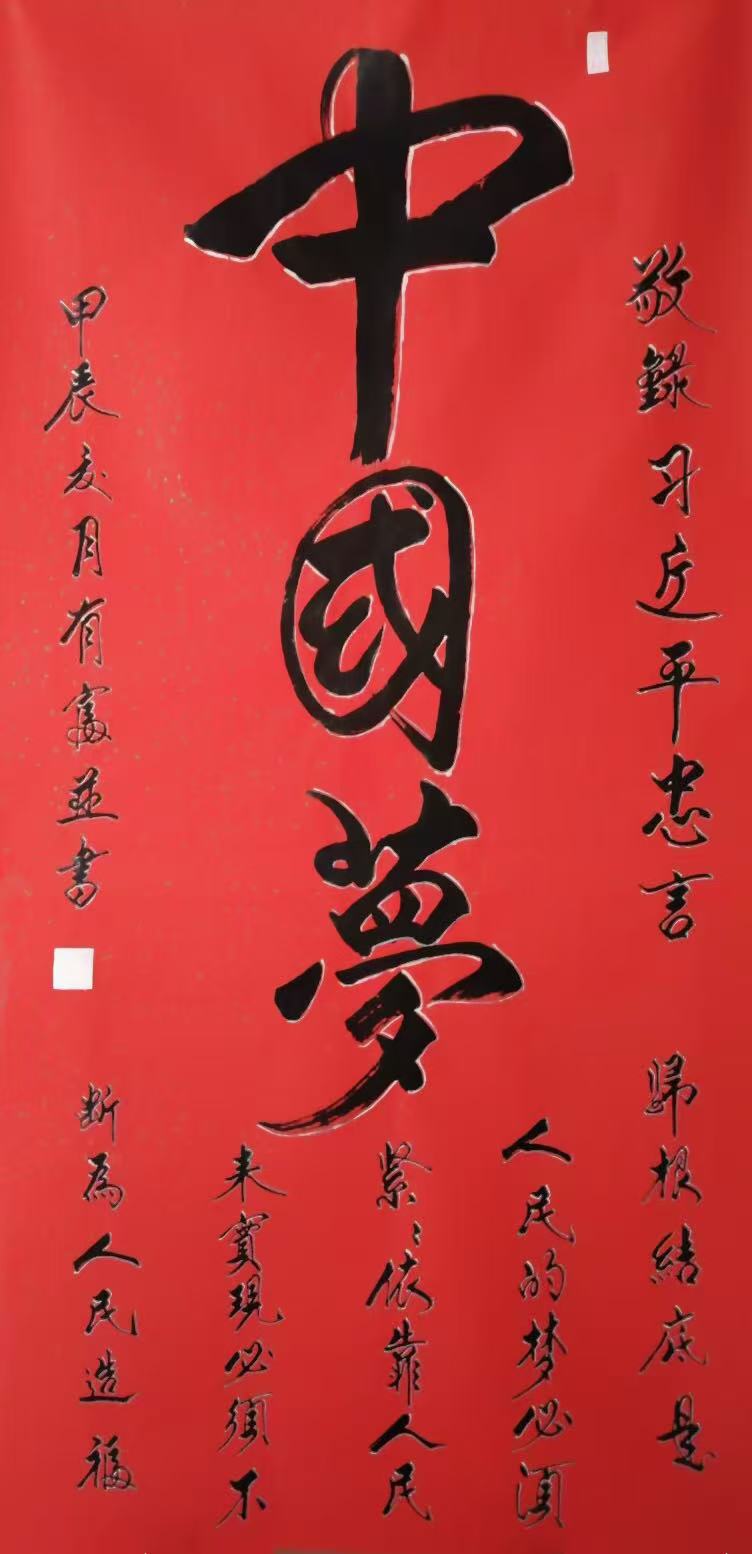 中國夢
敬錄习近平忠言
歸根結底是
人民的梦必須
緊〻依靠人民
来實現必須不
断為人民造福
甲辰月有富並書